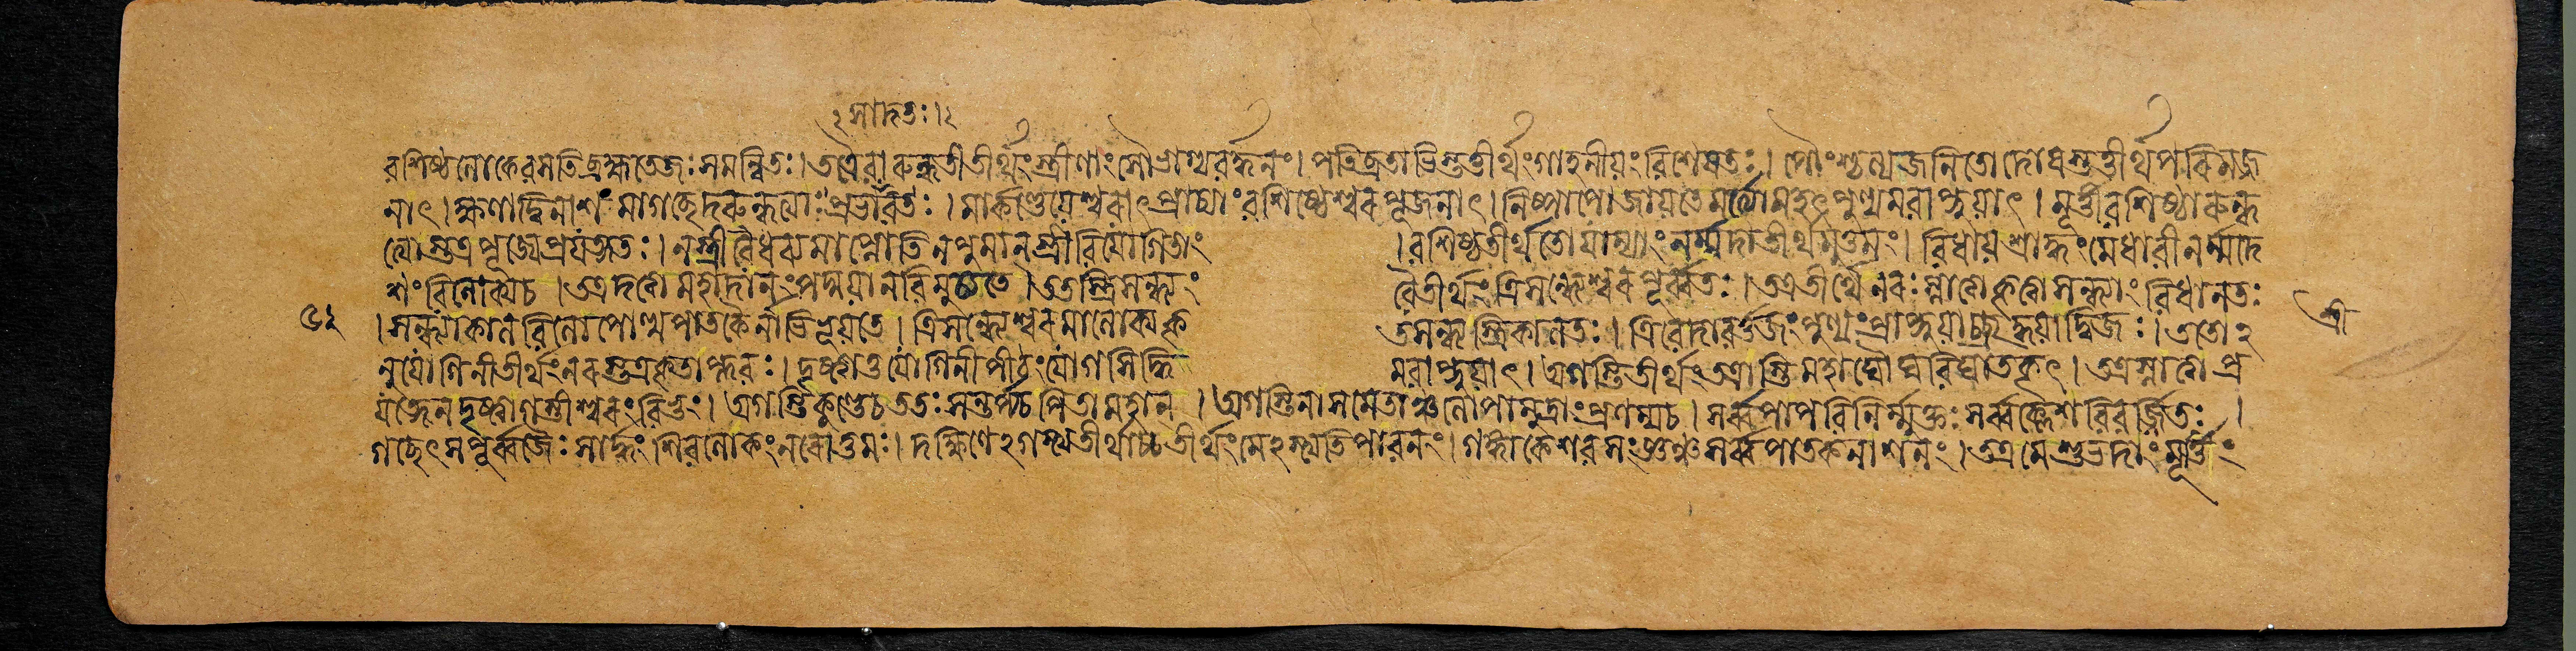 ২ সাদতঃ।২
বশিষ্ঠলোকেবসতিব্রহ্মতেজঃসমন্বিতঃ।তত্রৈবারুন্ধতীতীর্থংস্ত্রীণাংসৌভাগ্যবর্দ্ধনং। পতিব্রতাভিস্তুতীর্থংগাহনীয়ংবিশেষতঃ। পৌংশ্চল্যজনিতোদোষস্তত্তীর্থপরিমজ্জ
নাৎ।ক্ষণাদ্বিনাশমাগচ্ছেদরুন্ধত্যাঃপ্রভাবতঃ। মার্কণ্ডেয়েশ্বরাৎপ্রাচ্যাংবশিষ্ঠেশ্বরপূজনাৎ।নিষ্পাপোজায়তেমর্ত্যোমহৎপুণ্যমবাপ্নুয়াৎ। মূর্ত্তীবশিষ্ঠারুন্ধ
ত্যোস্তত্রপূজ্যেপ্রযত্নতঃ।নস্ত্রীবৈধব্যমাপ্নোতিনপুমানস্ত্রীবিযোগিতাং ।বশিষ্ঠতীর্থতোযাম্যাংনর্ম্মদাতীর্থমুত্তমং। বিধায়শ্রাদ্ধংমেধাবীনর্ম্মদে
শংবিলোক্যচ।তত্রদত্ত্বামহাদানংপদ্ময়ানবিমুচ্যতে।ততস্ত্রিসন্ধ্যং বৈতীর্থংত্রিসন্ধ্যেশ্বরপূর্ব্বতঃ।তত্রতীর্থেনরঃস্নাত্বাকৃত্বাসন্ধ্যাংবিধানতঃ
৬২ ।সন্ধ্যাকালবিলোপোত্থপাতকৈর্নাভিভূয়তে। ত্রিসন্ধ্যেশ্বরমালোক্যকৃ তসন্ধ্যস্ত্রিকালতঃ। ত্রিবেদাবর্ত্তজংপুণ্যংপ্রাপ্নুয়াচ্ছ্রদ্ধয়াদ্বিজঃ।ততো২ শ্রী
নুযোগিনীতীর্থংনরস্তত্রকৃতাপ্লবঃ। দৃষ্ট্বাতুযোগিনীপীঠংযোগসিদ্ধি মবাপ্নুয়াৎ।অগস্তিতীর্থংতত্রাস্তিমহাঘৌঘবিঘাতকৃৎ। তত্রস্নাত্বাপ্র
যত্নেনদৃষ্ট্বাগস্তীশ্বরংবিভুং। অগস্তিকুণ্ডেচততঃসন্তর্প্যচপিতামহান্ । অগস্তিনাসমেতাঞ্চলোপামুদ্রাংপ্রণম্যচ। সর্ব্বপাপবিনির্ম্মুক্তঃসর্ব্বক্লেশবিবর্জ্জিতঃ ।
গচ্ছেৎসপূর্ব্বজৈঃসার্দ্ধংশিবলোকংনরোত্তমঃ। দক্ষিণে২গস্ত্যতীর্থাচ্চতীর্থংমে২স্ত্যতিপাবনং। গঙ্গাকেশবসংজ্ঞঞ্চসর্ব্বপাতকনাশনং।তত্রমেশুভদাংমূর্ত্তিং